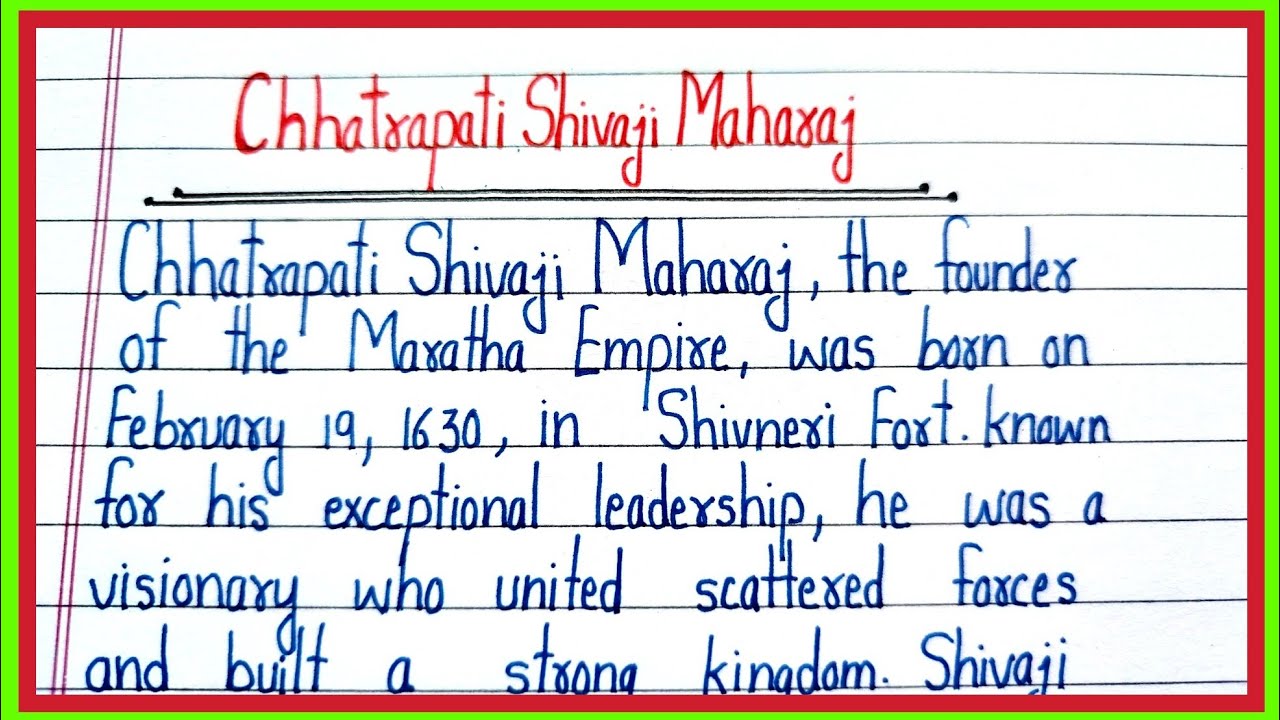 Chhatrapati Shivaji Maharaj
Chhatrapati Shivaji Maharaj, the founder
of the Maratha Empire, was born on
February 19, 1630, in Shivneri Fort. known
for his exceptional leadership, he was a
visionary who united scattered forces
and built a strong kingdom. Shivaji